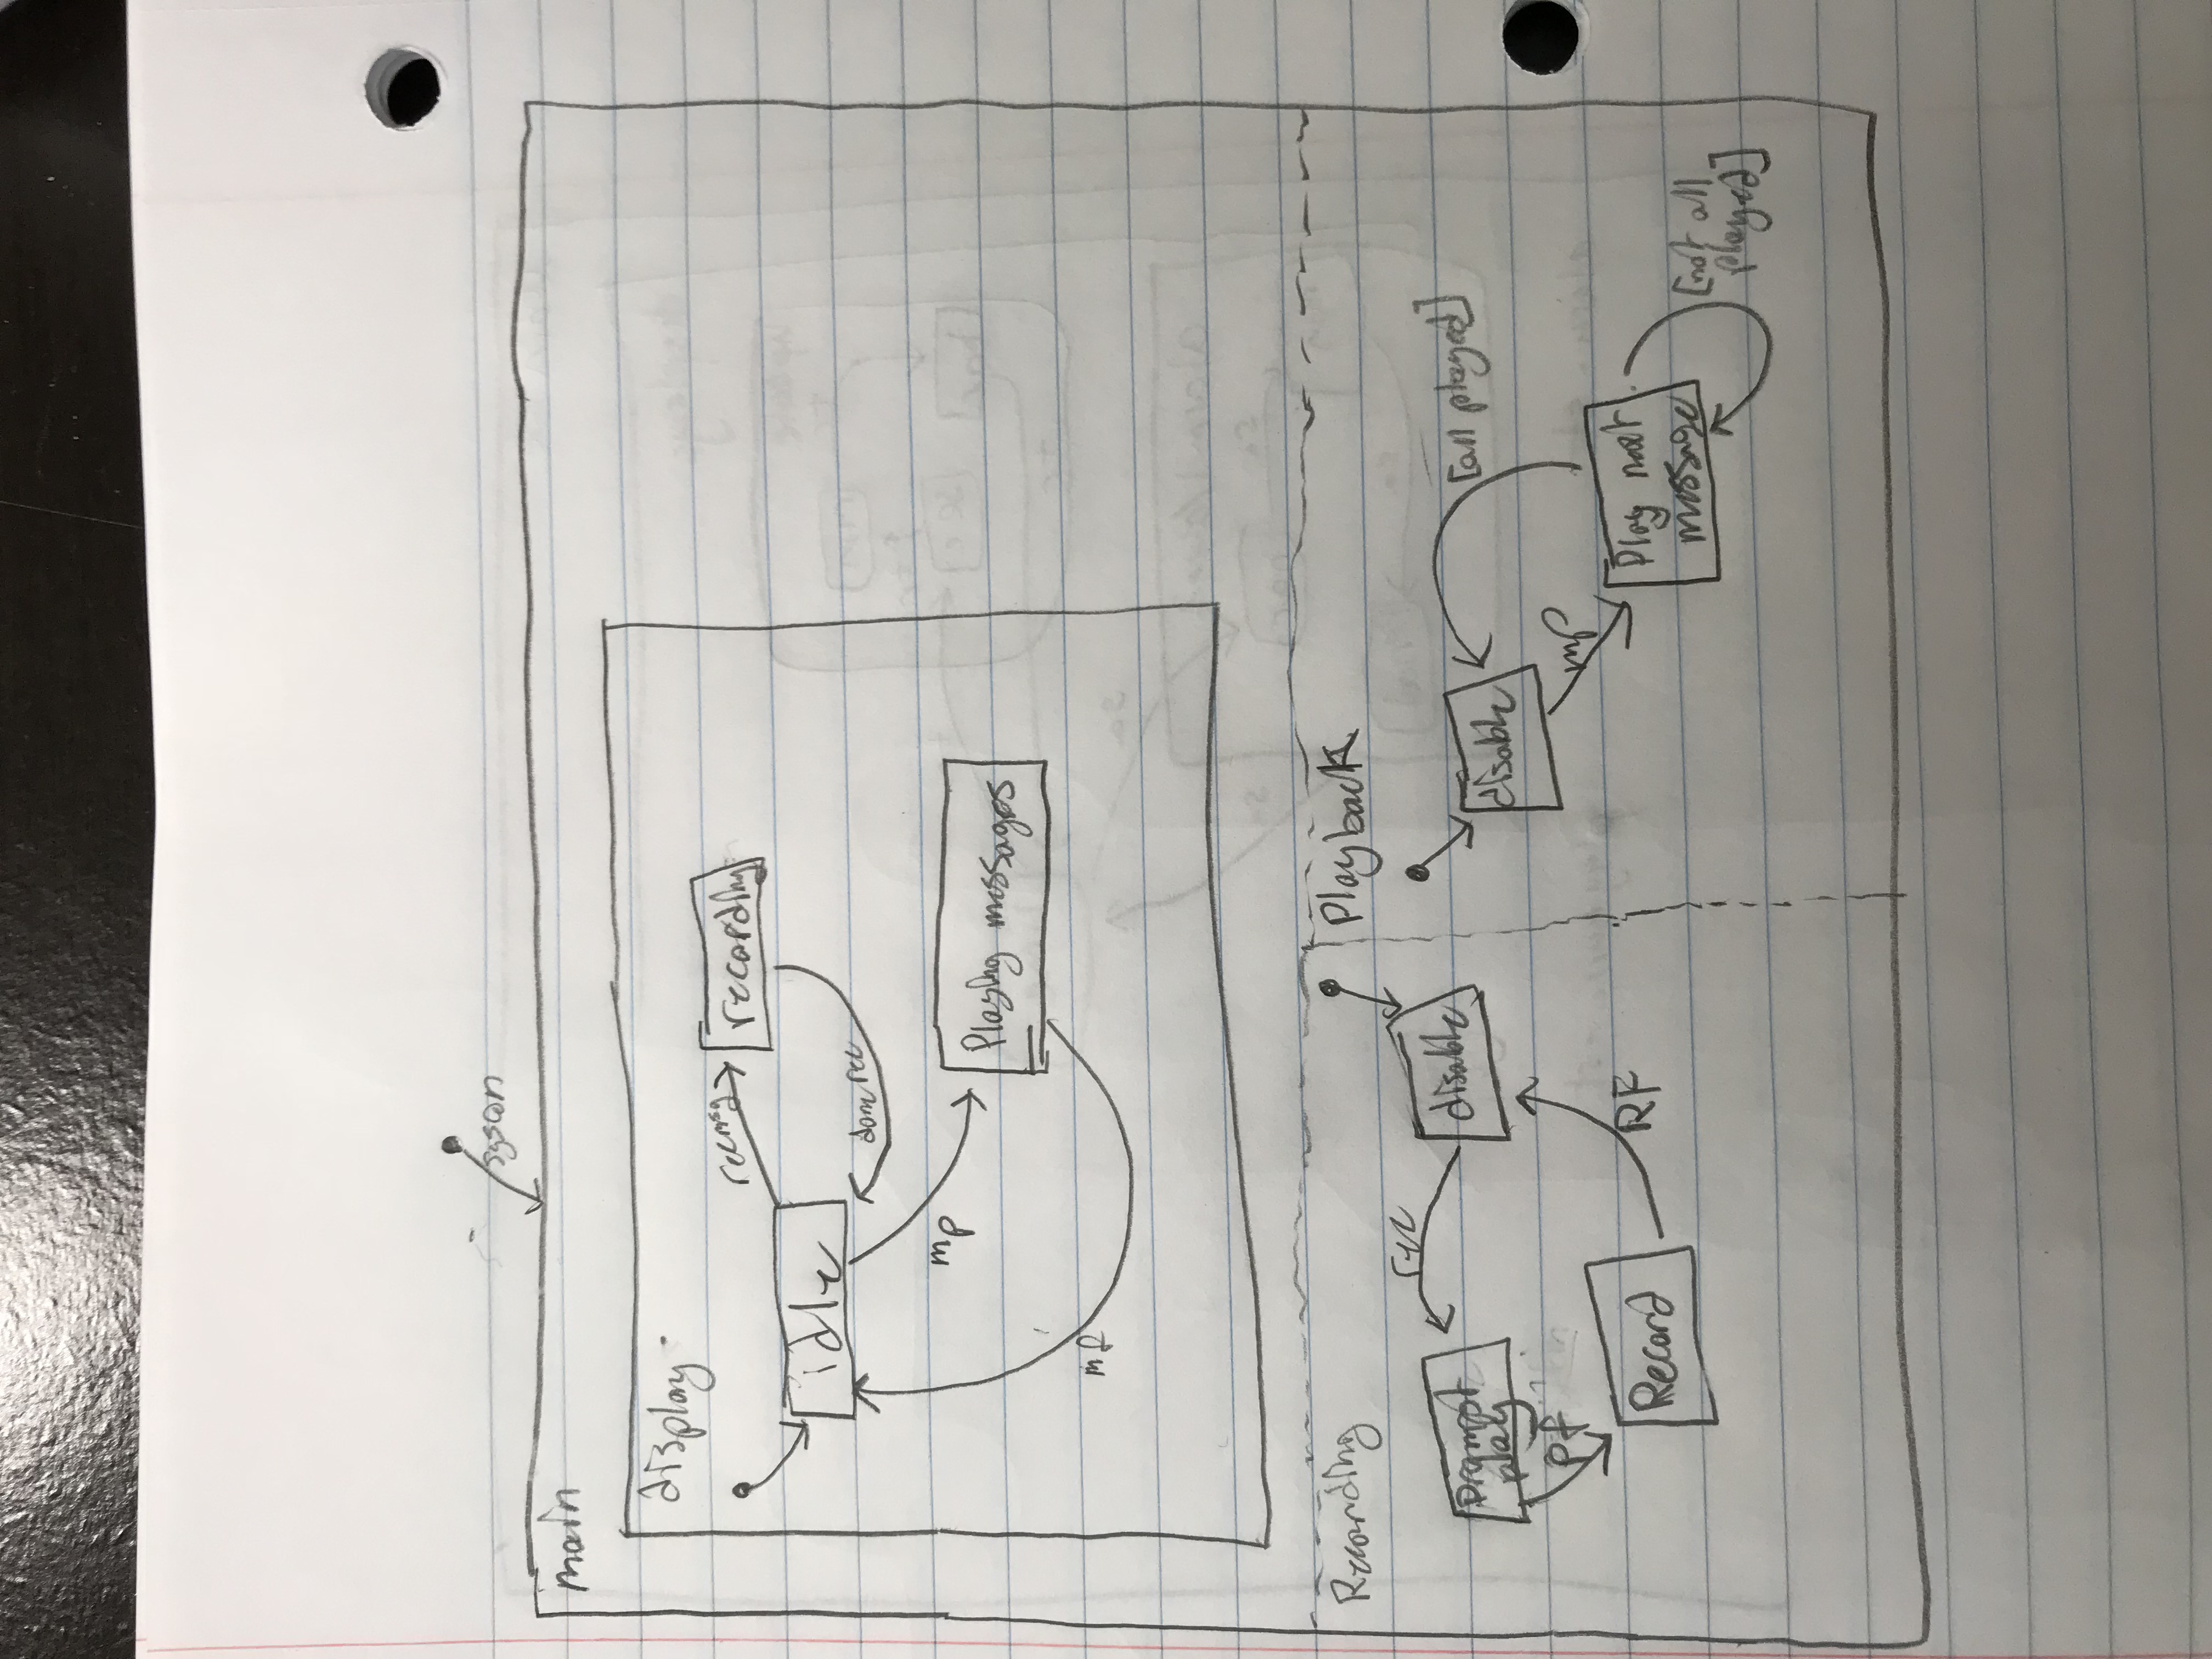 syson
main
display
recmsg
recording
idle
donerec
mp
Playing messages
mf
Recording
Playback
rec
disable
Prompt
play
pf
Record
RF
disable
[all played]
mp
Play next
message
[not all
played]